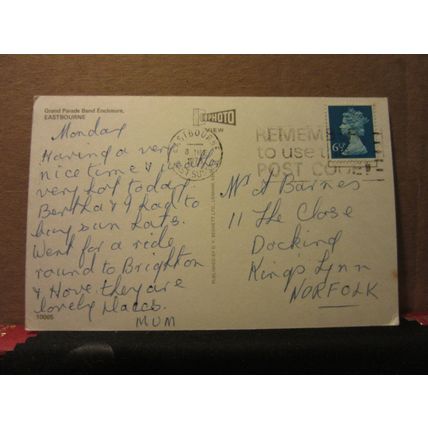 Grand Parade Band Enclosure,
EASTBOURNE
PHOTO
VIEW
EASTBOURNE
REMEMBER
to use the
POST CODE
6½
Monday
Having a very
nice time & weather
very hot today.
Bertha & I had to
buy sun hats.
Went for a ride
round to Brighton
& Hove they are
lovely places.
MUM
PUBLISHED BY D. V. BENNETT LTD.,
Mr A Barnes
11 The Close
Docking
King's Lynn
NORFOLK